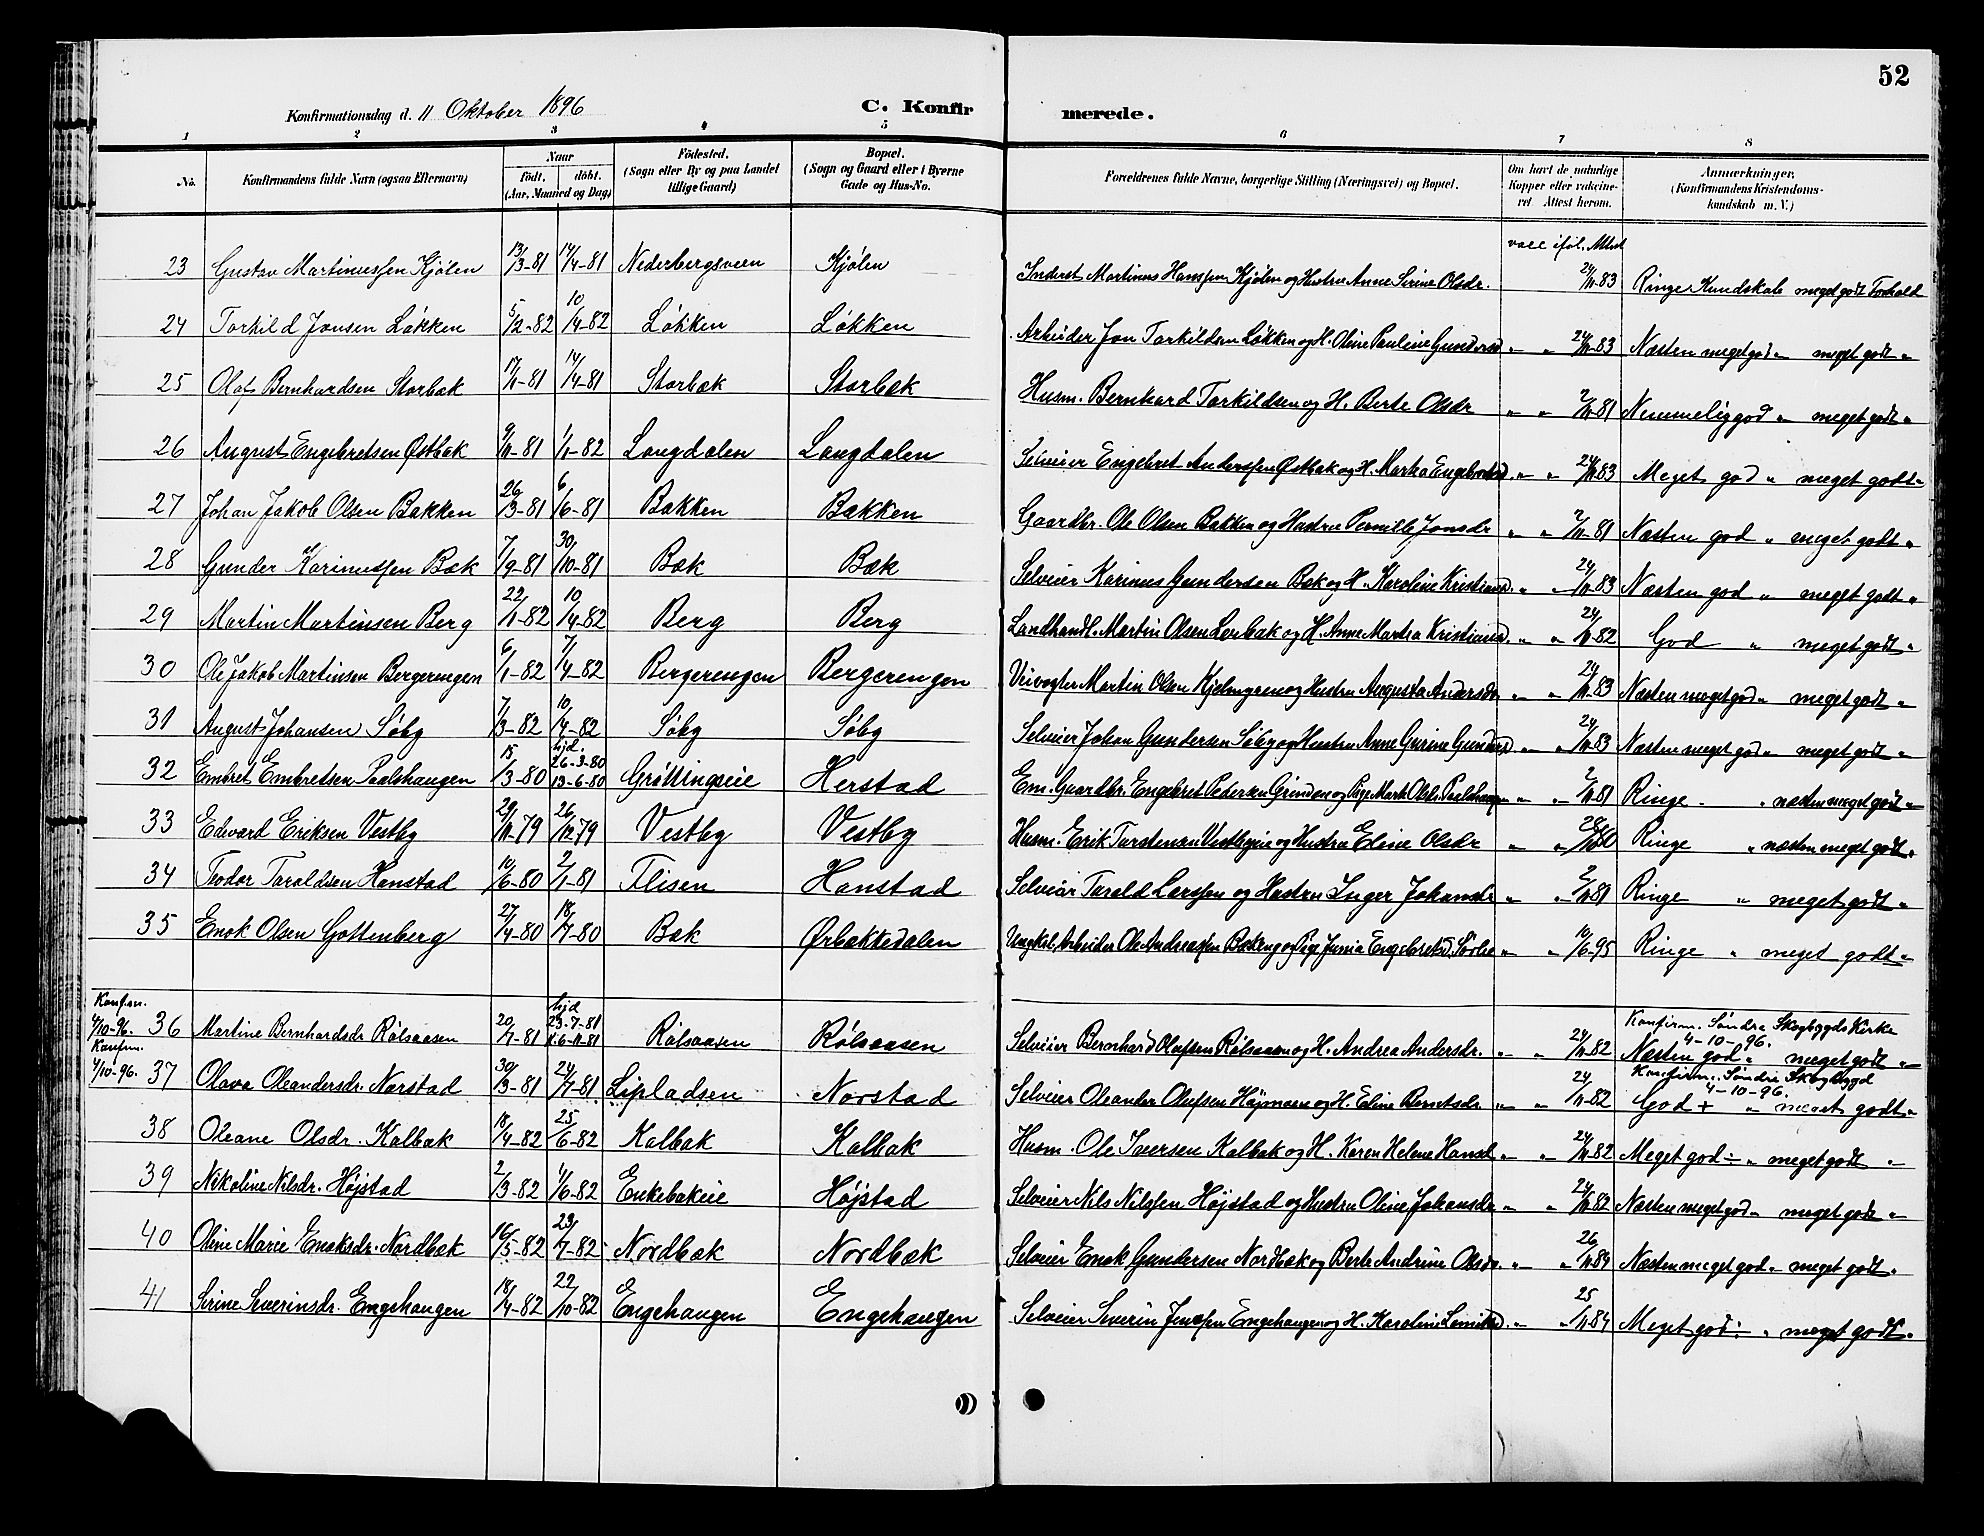 52
Konfirmationsdag d. 11 Oktober 1896
C. Konfir merede.
1 2 3 4 5 6 7 8
No.
Konfirmandens fulde Navn (ogsaa Efternavn)
Naar
født. døbt.
(Aar, Maaned og Dag)
Födested.
(Sogn eller By og paa Landet
tillige Gaard)
Bopæl.
(Sogn og Gaard eller i Byerne
Gade og Hus-No.
Forældrenes fulde Navne, borgerlige Stilling (Næringsvei) og Bopæl.
Om havt de naturlige
Kopper eller vakcine-
ret Attest herom.
Anmærkninger.
(Konfirmandens Kristendoms-
kundskab m. V.)
vacc. iføl. Attest
23 Gustav Martinussen Kjølen 13/3-81 14/4-81 Nederbergsveen Kjølen Inderst Martinus Hanssen Kjølen og Hustru Anne Sirine Olsdr. 24/11-83 Ringe Kundskab meget godt Forhold
24 Torkild Jonsen Løkken 5/2-82 10/4-82 Løkken Løkken Arbeider Jon Torkildsen Løkken og H. Oline Pauline Gundersd " " 24/11-83 Næsten meget god " meget godt "
25 Olaf Bernhardsen Storbæk 17/1-81 14/4-81 Storbæk Storbæk Husm. Bernhard Torkildsen og H. Berte Olsdr " " 2/11-81 Nemmelig god " meget godt "
26 August Engebretsen Østbæk 9/11-81 1/1-82 Langdalen Langdalen Selveier Engebret Anderssen Østbæk og H. Martea Engebretsd. " " 24/11-83 Meget god " meget godt "
27 Johan Jakob Olsen Bakken 26/3-81 6/6-81 Bakken Bakken Gaardbr. Ole Olsen Bakken og Hustru Pernille Jonsdr " " 2/11-81 Næsten god " meget godt "
28 Gunder Karinussen Bæk 7/9-81 30/10-81 Bæk Bæk Selveier Karinus Gundersen Bæk og H. Karoline Kristiansd. " " 24/11-83 Næsten god " meget godt "
29 Martin Martinsen Berg 22/1-82 10/4-82 Berg Berg Landhandl. Martin Olsen Lerbak og H. Anne Martea Kristiansd. " " 24/11-82 God " meget godt "
30 Ole Jakob Martinsen Bergerengen 6/1-82 7/4-82 Bergerengen Bergerengen Martin Olsen og Hustru Augusta Andersdr " " 24/11-83 Næsten meget god " meget godt "
31 August Johansen Søby 7/3-82 10/4-82 Søby Søby Selveier Johan Gundersen Søby og Hustru Anne Gurine Gundersd " " 24/11-83 Næsten meget god " meget godt "
32 Embret Embretsen Paalshaugen 15/3-80 hjd. 26-3-80 13-6-80 Grøttingseie Herstad Em. Gaardbr. Engebret Pedersen Grinden og Pige Marte Olsd. Paalshaugen " " 2/11-81 Ringe " næsten meget godt "
33 Edvard Eriksen Vestby 29/11-79 26/12-79 Vestby Vestby Husm. Erik Torstensen Vestbyeie og Hustru Eline Olsdr " " 28/11-80 Ringe " næsten meget godt "
34 Teodor Taraldsen Hanstad 10/6-80 2/1-81 Flisen Hanstad Selveier Tarald Larssen og Hustru Inger Johansdr " " 2/11-81 Ringe " meget godt "
35 Enok Olsen Gottenberg 27/4-80 18/7-80 Bæk Ørbækkedalen Ungkel. Arbeider Ole Andreassen og Pige Junia Engebretsd. Sørlie " " 10/6-95 Ringe " meget godt "
Konfirm. 4/10-96. 36 Martine Bernhardsdr Rølsaasen 20/7-81 hjd 23-7-81 k. 6-11-81 Rølsaasen Rølsaasen Selveier Bernhard Olufsen Rølsaasen og H. Andrea Andersdr. " " 24/11-82 Konfirm. Søndre Skogbygds Kirke 4-10-96. Næsten god " meget godt "
Konfirm. 4/10-96. 37 Olava Oleandersdr. Norstad 30/3-81 24/7-81 Lipladsen Norstad Selveier Oleander Olufsen Højmoen og H. Eline Berntsdr. " " 24/11-82 Konfirm. Søndre Skogbygd 4-10-96. God + " meget godt "
38 Oleane Olsdr. Kalbæk 18/4-82 25/6-82 Kalbæk Kalbæk Husm. Ole Iversen Kalbæk og H. Karen Helene Hansd " " 24/11-82 Meget god ÷ " meget godt "
39 Nikoline Nilsdr. Højstad 2/3-82 4/6-82 Enkebakeie Højstad Selveier Nils Nilssen Højstad og Hustru Oline Johansdr " " 24/11-82 Næsten meget god " meget godt "
40 Oline Marie Enoksdr. Nordbæk 16/5-82 23/7-82 Nordbæk Nordbæk Selveier Enok Gundersen Nordbæk og Berte Andrine Olsdr. " " 26/11-84 Næsten meget god " meget godt "
41 Serine Severinsdr. Engehaugen 18/4-82 22/10-82 Engehaugen Engehaugen Selveier Severin Jenssen Engehaugen og H. Karoline " " 25/11-84 Meget god ÷ " meget godt "